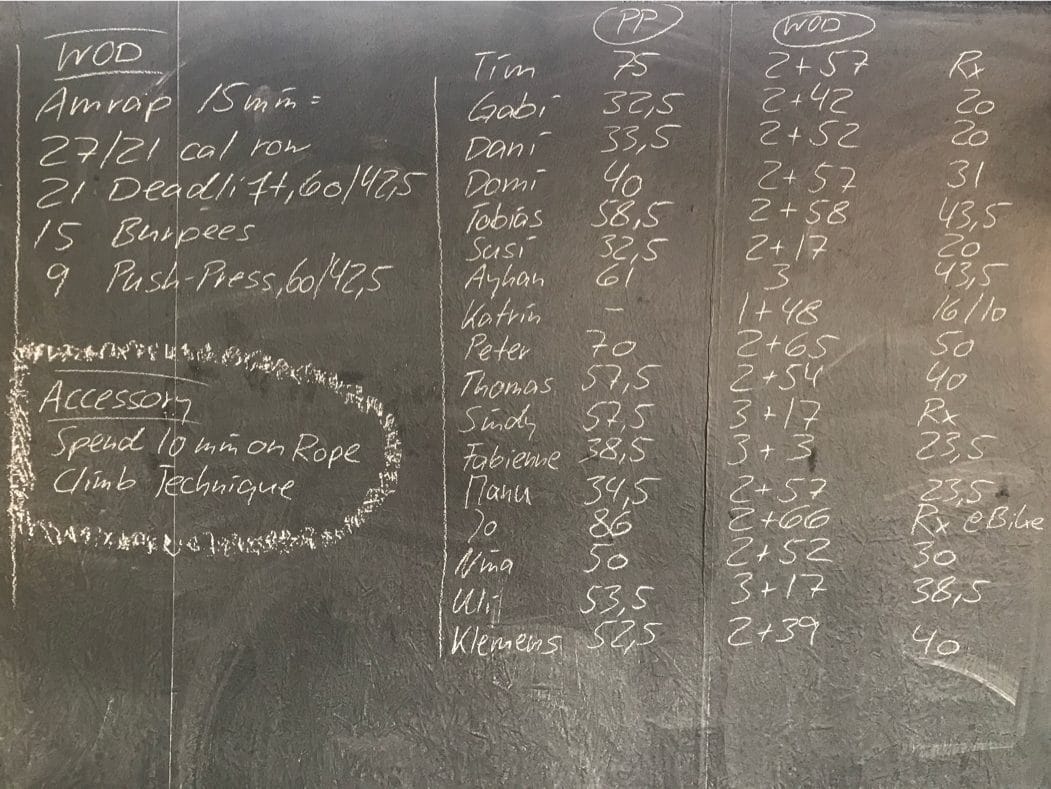 WOD
Amrap 15min:
27/21 cal row
21 Deadlift, 60/42,5
15 Burpees
9 Push-Press, 60/42,5
Accessory
Spend 10 min on Rope
Climb Technique
PP WOD
Tim 75 2+57 Rx
Gabi 32,5 2+42 20
Dani 33,5 2+52 20
Domi 40 2+57 31
Tobias 58,5 2+58 43,5
Susi 32,5 2+17 20
Ayhan 61 3 43,5
Katrin - 1+48 16/10
Peter 70 2+65 50
Thomas 57,5 2+54 40
Sindy 57,5 3+17 Rx
Fabienne 38,5 3+3 23,5
Manu 34,5 2+57 23,5
Jo 86 2+66 Rx @Bike
Nina 50 2+52 30
Uli 53,5 3+17 38,5
Klemens 52,5 2+39 40